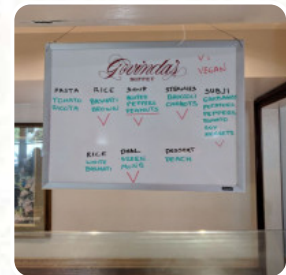 Govinda's
BUFFET
V =
VEGAN
PASTA
TOMATO
RICE
BASMATI
BROWN
V
SOUP
PEPPERS
V
STEAMED
BROCCOLI
CARROTS
V
SUBJI
POTATOES
PEPPERS
TOMATO
SOY
NUGGETS
V
RICE
WHITE
BASMATI
DHAL
GREEN
MUNG
V
DESSERT
PEACH